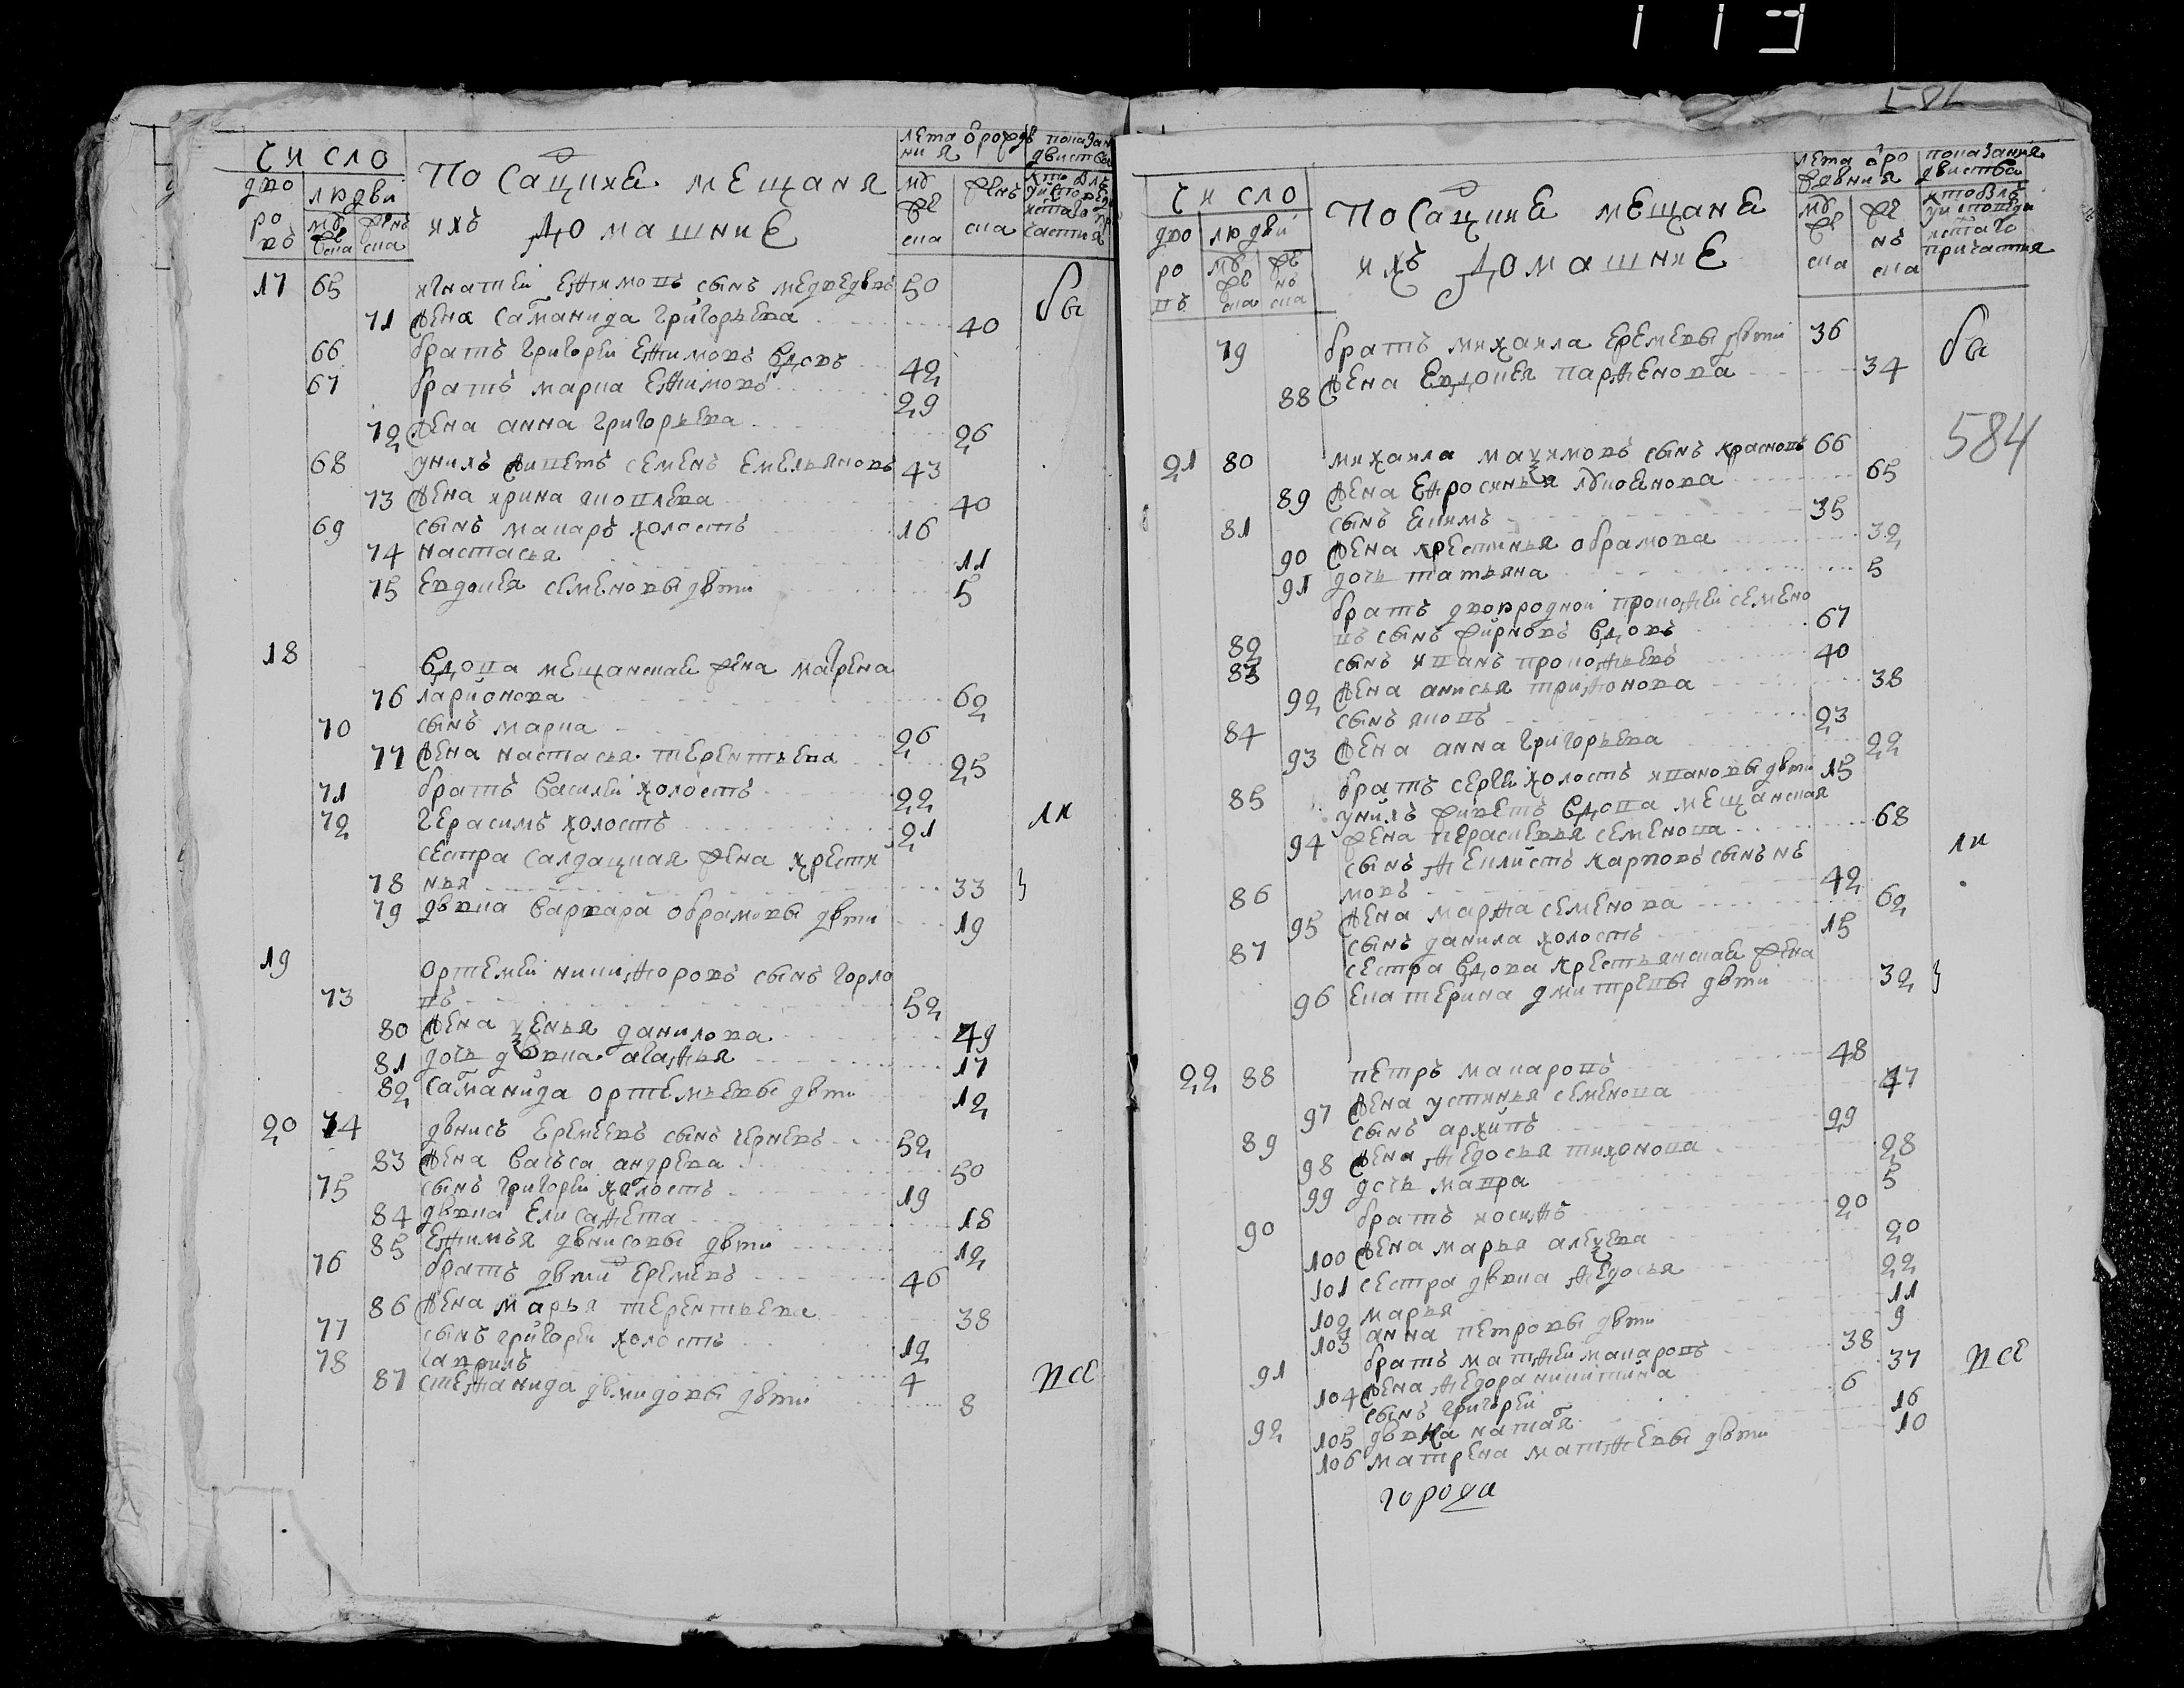 119
число
дворовъ
людѣи
мужеска
женска
Посацкие мещаня
ихъ домашние
лета от рождения
мужеска
женска
показание действа
17 65 игнатеи ефимовъ сынъ медведевъ 50
71 жена саламанида григорьева 40
66 братъ григореи ефимовъ вдовъ 42
67 братъ марка ефимовъ 29
72 жена анна григорьева 26
68 у нихъ живетъ семенъ емельяновъ 43
73 жена ирина яковлева 40
69 сынъ макаръ холостъ 16
74 настасья 11
75 евдокея семеновы дѣти 5
18 вдова мещанская жена матрена
76 ларионова 62
70 сынъ марка 26
77 жена настасья терентьева 25
71 братъ василеи холостъ 22
72 герасимъ холостъ 21
сестра салдацкая жена хрести
78 нья 33
79 дѣвка варвара обрамовы дѣти 19
19 ортемеи никифоровъ сынъ горло
73 въ 52
80 жена ѯенья данилова 49
81 дочь дѣвка агафья 17
82 саламанида ортемьевы дѣти 12
20 74 дѣнисъ еремеевъ сынъ черневъ 52
83 жена васъса андреева 50
75 сынъ григореи холостъ 19
84 дѣвка елисафета 18
85 ефимья дѣнисовы дѣти 12
76 братъ дѣмидъ еремеевъ 46
86 жена марья терентьева 38
77 сынъ григореи холостъ 12
78 гаврилъ 4
87 стефанида дѣмидовы дѣти 8
бы
ли
все
число
дворовъ
людѣи
мужеска
женска
Посацкие мещане
ихъ домашние
лета от рождения
мужеска
женска
показания действа
кто был у исповеди и святаго причастия
79 братъ михаила еремеевы дѣти 36
88 жена евдокея парфенова 34
584
21 80 михаила маѯимовъ сынъ красновъ 66
89 жена ефросинья лукоянова 65
81 сынъ екимъ 35
90 жена хрестинья обрамова 32
91 дочь татьяна 5
братъ двоюродной прокофеи семено
82 въ сынъ жирновъ вдовъ 67
83 сынъ иванъ прокофьевъ 40
92 жена анисья трифонова 38
84 сынъ яковъ 23
93 жена анна григорьева 22
85 братъ сергеи холостъ ивановы дѣти 15
у нихъ живетъ вдова мещанская
94 жена парасковья семенова 68
сынъ феклистъ карповъ сынъ не
86 мовъ 42
95 жена марфа семенова 62
87 сынъ данила холостъ 15
сестра вдова крестьянская жена
96 екатерина дмитревы дѣти 32
22 88 петръ макаровъ 48
97 жена устинья семенова 47
89 сынъ архипъ 29
98 жена федосья тихонова 28
99 дочь мавра 5
90 братъ иосифъ 20
100 жена марья алеѯеева 20
101 сестра дѣвка федосья 22
102 марья 11
103 анна петровы дѣти 9
91 братъ матфеи макаровъ 38
104 жена федора никитина 37
92 сынъ григореи 6
105 дѣвка наталя 16
106 матрена матфеевы дѣти 10
города
бы
ли
все